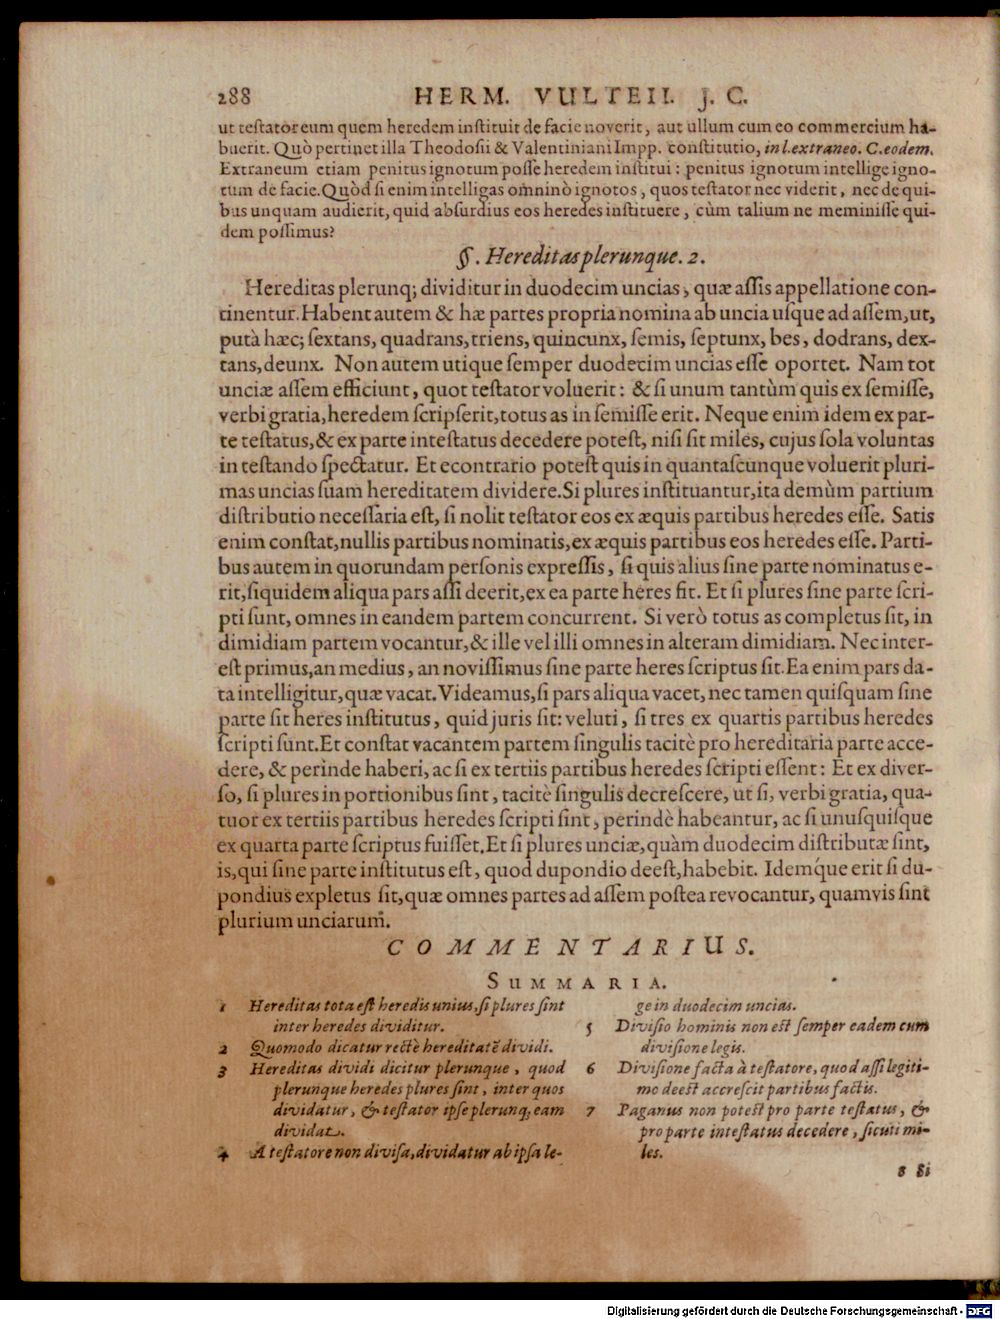 288 HERM. VULTEII. J. C.
ut teſtator eum quem heredem inſtituit de facie noverit, aut ullum cum eo commercium ha-
buerit. Quò pertinet illa Theodoſii & Valentiniani Impp. conſtitutio, in l. extraneo. C. eodem.
Extraneum etiam penitus ignotum poſſe heredem inſtitui: penitus ignotum intellige igno-
tum de facie. Quòd ſi enim intelligas omninò ignotos, quos teſtator nec viderit, nec de qui-
bus unquam audierit, quid abſurdius eos heredes inſtituere, cùm talium ne meminiſſe qui-
dem poſſimus?
§. Hereditas plerunque. 2.
Hereditas plerunq; dividitur in duodecim uncias, quæ aſſis appellatione con-
tinentur. Habent autem & hæ partes propria nomina ab uncia uſque ad aſſem, ut,
putà hæc; ſextans, quadrans, triens, quincunx, ſemis, ſeptunx, bes, dodrans, dex-
tans, deunx. Non autem utique ſemper duodecim uncias eſſe oportet. Nam tot
unciæ aſſem efficiunt, quot teſtator voluerit: & ſi unum tantùm quis ex ſemiſſe,
verbi gratia, heredem ſcripſerit, totus as in ſemiſſe erit. Neque enim idem ex par-
te teſtatus, & ex parte inteſtatus decedere poteſt, niſi ſit miles, cujus ſola voluntas
in teſtando ſpectatur. Et econtrario poteſt quis in quantaſcunque voluerit pluri-
mas uncias ſuam hereditatem dividere. Si plures inſtituantur, ita demùm partium
diſtributio neceſſaria eſt, ſi nolit teſtator eos ex æquis partibus heredes eſſe. Satis
enim conſtat, nullis partibus nominatis, ex æquis partibus eos heredes eſſe. Parti-
bus autem in quorundam perſonis expreſſis, ſi quis alius ſine parte nominatus e-
rit, ſiquidem aliqua pars aſſi deerit, ex ea parte heres fit. Et ſi plures ſine parte ſcri-
pti ſunt, omnes in eandem partem concurrent. Si verò totus as completus ſit, in
dimidiam partem vocantur, & ille vel illi omnes in alteram dimidiam. Nec inter-
eſt primus, an medius, an noviſſimus ſine parte heres ſcriptus ſit. Ea enim pars da-
ta intelligitur, quæ vacat. Videamus, ſi pars aliqua vacet, nec tamen quiſquam ſine
parte ſit heres inſtitutus, quid juris ſit: veluti, ſi tres ex quartis partibus heredes
ſcripti ſunt. Et conſtat vacantem partem ſingulis tacitè pro hereditaria parte acce-
dere, & perinde haberi, ac ſi ex tertiis partibus heredes ſcripti eſſent: Et ex diver-
ſo, ſi plures in portionibus ſint, tacitè ſingulis decreſcere, ut ſi, verbi gratia, qua-
tuor ex tertiis partibus heredes ſcripti ſint, perindè habeantur, ac ſi unuſquiſque
ex quarta parte ſcriptus fuiſſet. Et ſi plures unciæ, quàm duodecim diſtributæ ſint,
is, qui ſine parte inſtitutus eſt, quod dupondio deeſt, habebit. Idemque erit ſi du-
pondius expletus ſit, quæ omnes partes ad aſſem poſtea revocantur, quamvis ſint
plurium unciarum.
COMMENTARIUS.
SUMMARIA.
1 Hereditas tota eſt heredis unius, ſi plures ſint
inter heredes dividitur.
2 Quomodo dicatur rectè hereditatē dividi.
3 Hereditas dividi dicitur plerunque, quod
plerunque heredes plures ſint, inter quos
dividatur, & teſtator ipſe plerunq; eam
dividat.
4 A teſtatore non diviſa, dividatur ab ipſa le-
ge in duodecim uncias.
5 Diviſio hominis non eſt ſemper eadem cum
diviſione legis.
6 Diviſione facta à teſtatore, quod aſſi legiti-
mo deeſt accreſcit partibus factis.
7 Paganus non poteſt pro parte teſtatus, &
pro parte inteſtatus decedere, ſicuti mi-
les.
8 Si
Digitalisierung gefördert durch die Deutsche Forschungsgemeinschaft - DFG